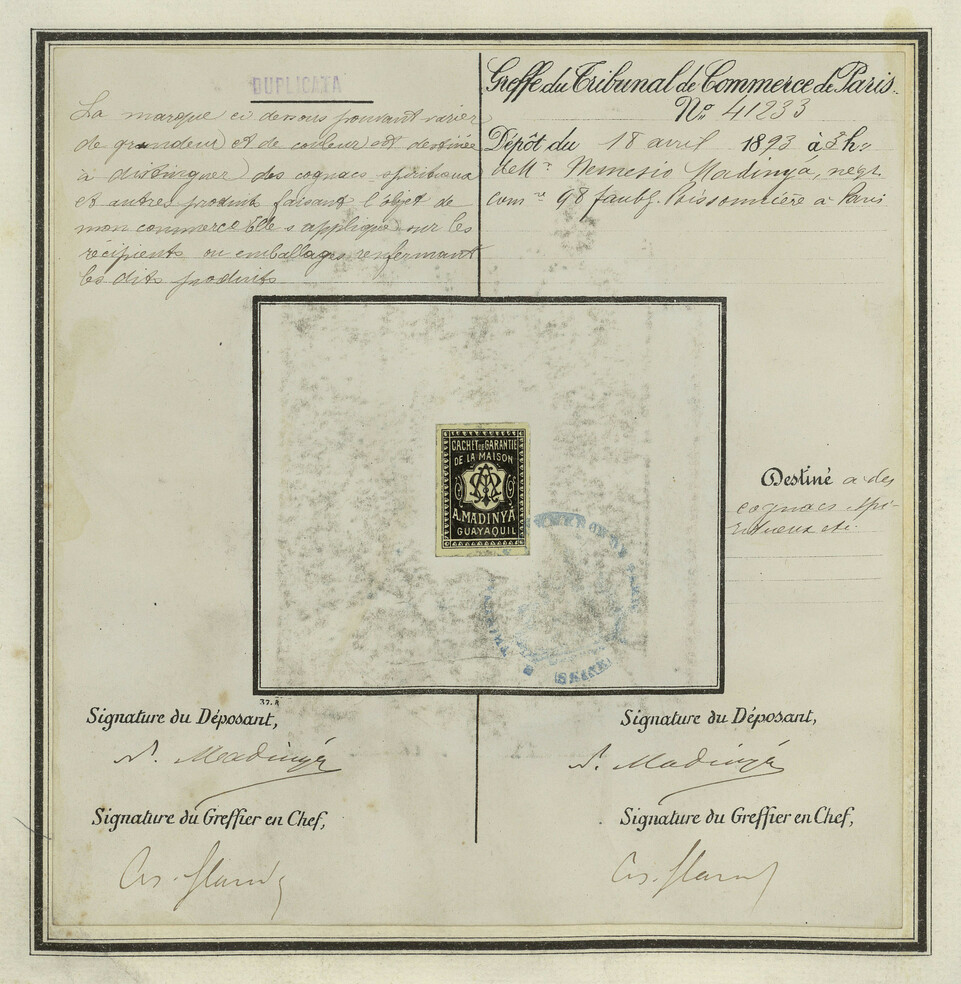 DUPLICATA
La marque ci dessous pouvant varier
de grandeur et de couleur est destinée
à distinguer des cognacs spiritueux
et autres produits faisant l'objet de
mon commerce Elle s'applique sur les
récipients ou emballages renfermant
les dits produits
Greffe du Tribunal de Commerce de Paris.
No. 41233
Dépôt du 18 avril 1893 à 3 h.
de Mr. Nemesio Madinyá, négt
comre 98 faubg. Poissonnière à Paris
CACHET DE GARANTIE
DE LA MAISON
A. MADINYÁ
GUAYAQUIL
SEINE
Destiné a des
cognacs spi-
ritueux etc.
37. R
Signature du Déposant,
N. Madinyá
Signature du Greffier en Chef,
Signature du Déposant,
N. Madinyá
Signature du Greffier en Chef,